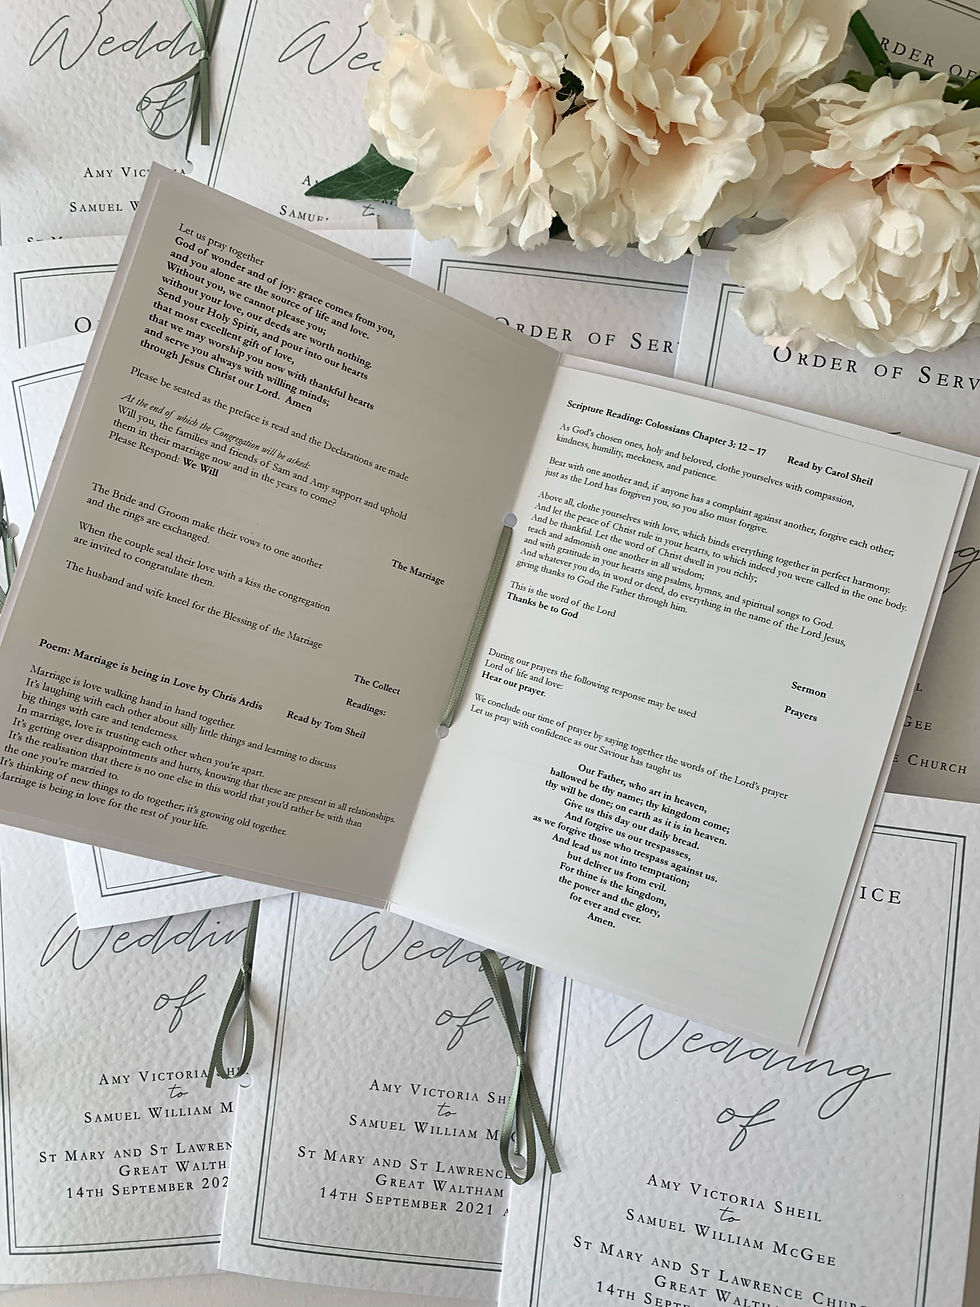 Wedding
of
Amy Vic
Samuel W
We
A
Samuel
to
Order of
Order of Ser
Order of Serv
Let us pray together
God of wonder and of joy: grace comes from you,
and you alone are the source of life and love.
Without you, we cannot please you;
without your love, our deeds are worth nothing.
Send your Holy Spirit, and pour into our hearts
that most excellent gift of love,
that we may worship you now with thankful hearts
and serve you always with willing minds;
through Jesus Christ our Lord. Amen
Please be seated as the preface is read and the Declarations are made
At the end of which the Congregation will be asked:
Will you, the families and friends of Sam and Amy support and uphold
them in their marriage now and in the years to come?
Please Respond: We Will
The Marriage
The Bride and Groom make their vows to one another
and the rings are exchanged.
When the couple seal their love with a kiss the congregation
are invited to congratulate them.
The husband and wife kneel for the Blessing of the Marriage
The Collect
Readings:
Poem: Marriage is being in Love by Chris Ardis Read by Tom Sheil
Marriage is love walking hand in hand together.
It's laughing with each other about silly little things and learning to discuss
big things with care and tenderness.
In marriage, love is trusting each other when you're apart.
It's getting over disappointments and hurts, knowing that these are present in all relationships.
It's the realisation that there is no one else in this world that you'd rather be with than
the one you're married to.
It's thinking of new things to do together; it's growing old together.
Marriage is being in love for the rest of your life.
Scripture Reading: Colossians Chapter 3: 12 – 17 Read by Carol Sheil
As God's chosen ones, holy and beloved, clothe yourselves with compassion,
kindness, humility, meekness, and patience.
Bear with one another and, if anyone has a complaint against another, forgive each other;
just as the Lord has forgiven you, so you also must forgive.
Above all, clothe yourselves with love, which binds everything together in perfect harmony.
And let the peace of Christ rule in your hearts, to which indeed you were called in the one body.
And be thankful. Let the word of Christ dwell in you richly;
teach and admonish one another in all wisdom;
and with gratitude in your hearts sing psalms, hymns, and spiritual songs to God.
And whatever you do, in word or deed, do everything in the name of the Lord Jesus,
giving thanks to God the Father through him.
This is the word of the Lord
Thanks be to God
Sermon
Prayers
During our prayers the following response may be used
Lord of life and love:
Hear our prayer.
We conclude our time of prayer by saying together the words of the Lord's prayer
Let us pray with confidence as our Saviour has taught us
Our Father, who art in heaven,
hallowed be thy name; thy kingdom come;
thy will be done; on earth as it is in heaven.
Give us this day our daily bread.
And forgive us our trespasses,
as we forgive those who trespass against us.
And lead us not into temptation;
but deliver us from evil.
For thine is the kingdom,
the power and the glory,
for ever and ever.
Amen.
Gee
e Church
ice
Wedding
of
Amy Victoria Sheil
to
Samuel William M
St Mary and St Lawren
Great Walth
14th September 202
Wedding
of
Amy Victoria Sh
to
Samuel William McG
St Mary and St Lawrence
Great Waltham
14th September 2021
Wedding
of
Amy Victoria Sheil
to
Samuel William McGee
St Mary and St Lawrence Churc
Great Waltham
14th Septem